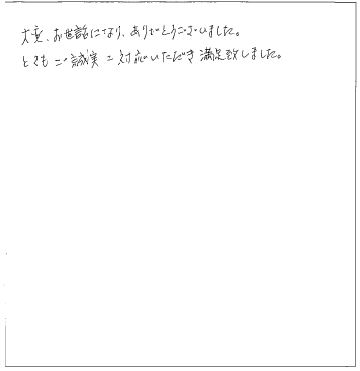 大変、お世話になり、ありがとうございました。
とてもご誠実に対応いただき満足致しました。